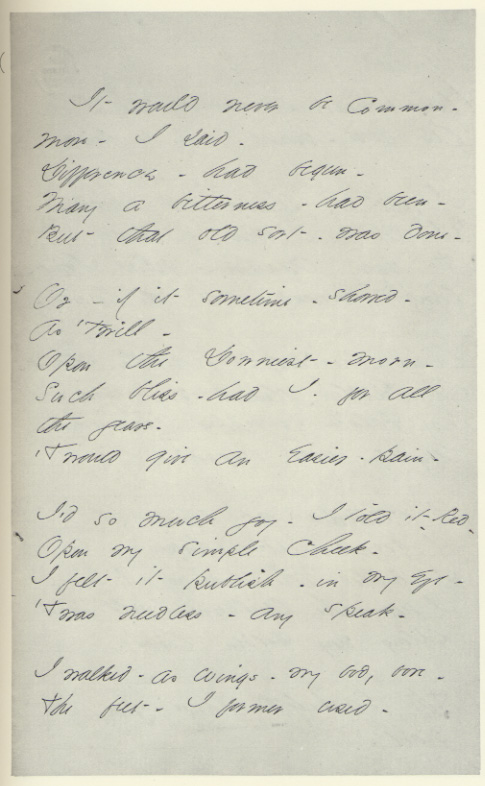 It would never be Common -
more - I said -
Difference - had begun -
Many a bitterness - had been -
But - that old sort - was done -
Or - if it sometime - showed -
As 'twill -
Opon the Downiest - morn -
Such bliss - had I - for all
the years -
'Twould give an Easier - pain -
I'd so much joy - I told it - Red -
Opon my simple Cheek -
I felt it publish - in my Eye -
'Twas needless - any speak -
I walked - as wings - my body bore -
The feet - I former used -